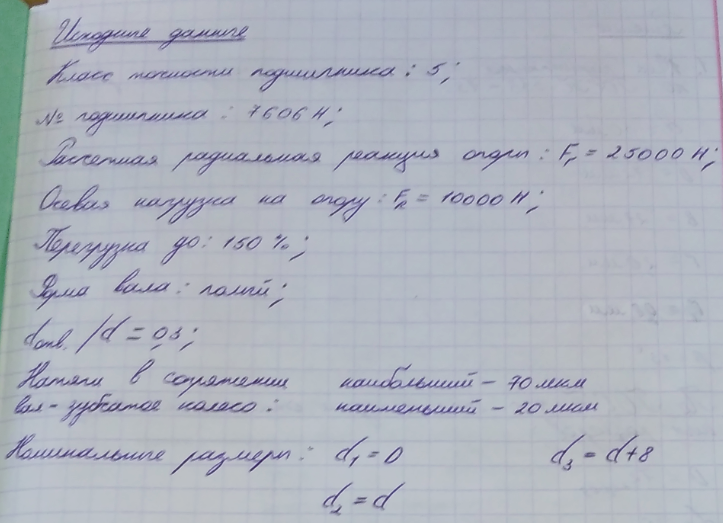 Исходные данные
Класс точности подшипника: 5;
№ подшипника: 7606Н;
Расчетная радиальная реакция опоры: Fr = 25000 Н;
Осевая нагрузка на опору: Fa = 10000 Н;
Перегрузка до: 150 %;
Форма вала: полый;
dотв. / d = 0,3;
Натяги в сопряжении наибольший - 70 мкм
вал - зубчатое колесо: наименьший - 20 мкм
Номинальные размеры: d1 = D d3 = d+8
d2 = d